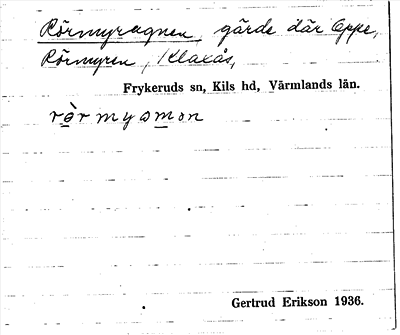 Rörmyragnen, gärde där Oppe,
Rörmyren, Klaxås,
Frykeruds sn, Kils hd, Värmlands län.
Gertrud Erikson 1936.